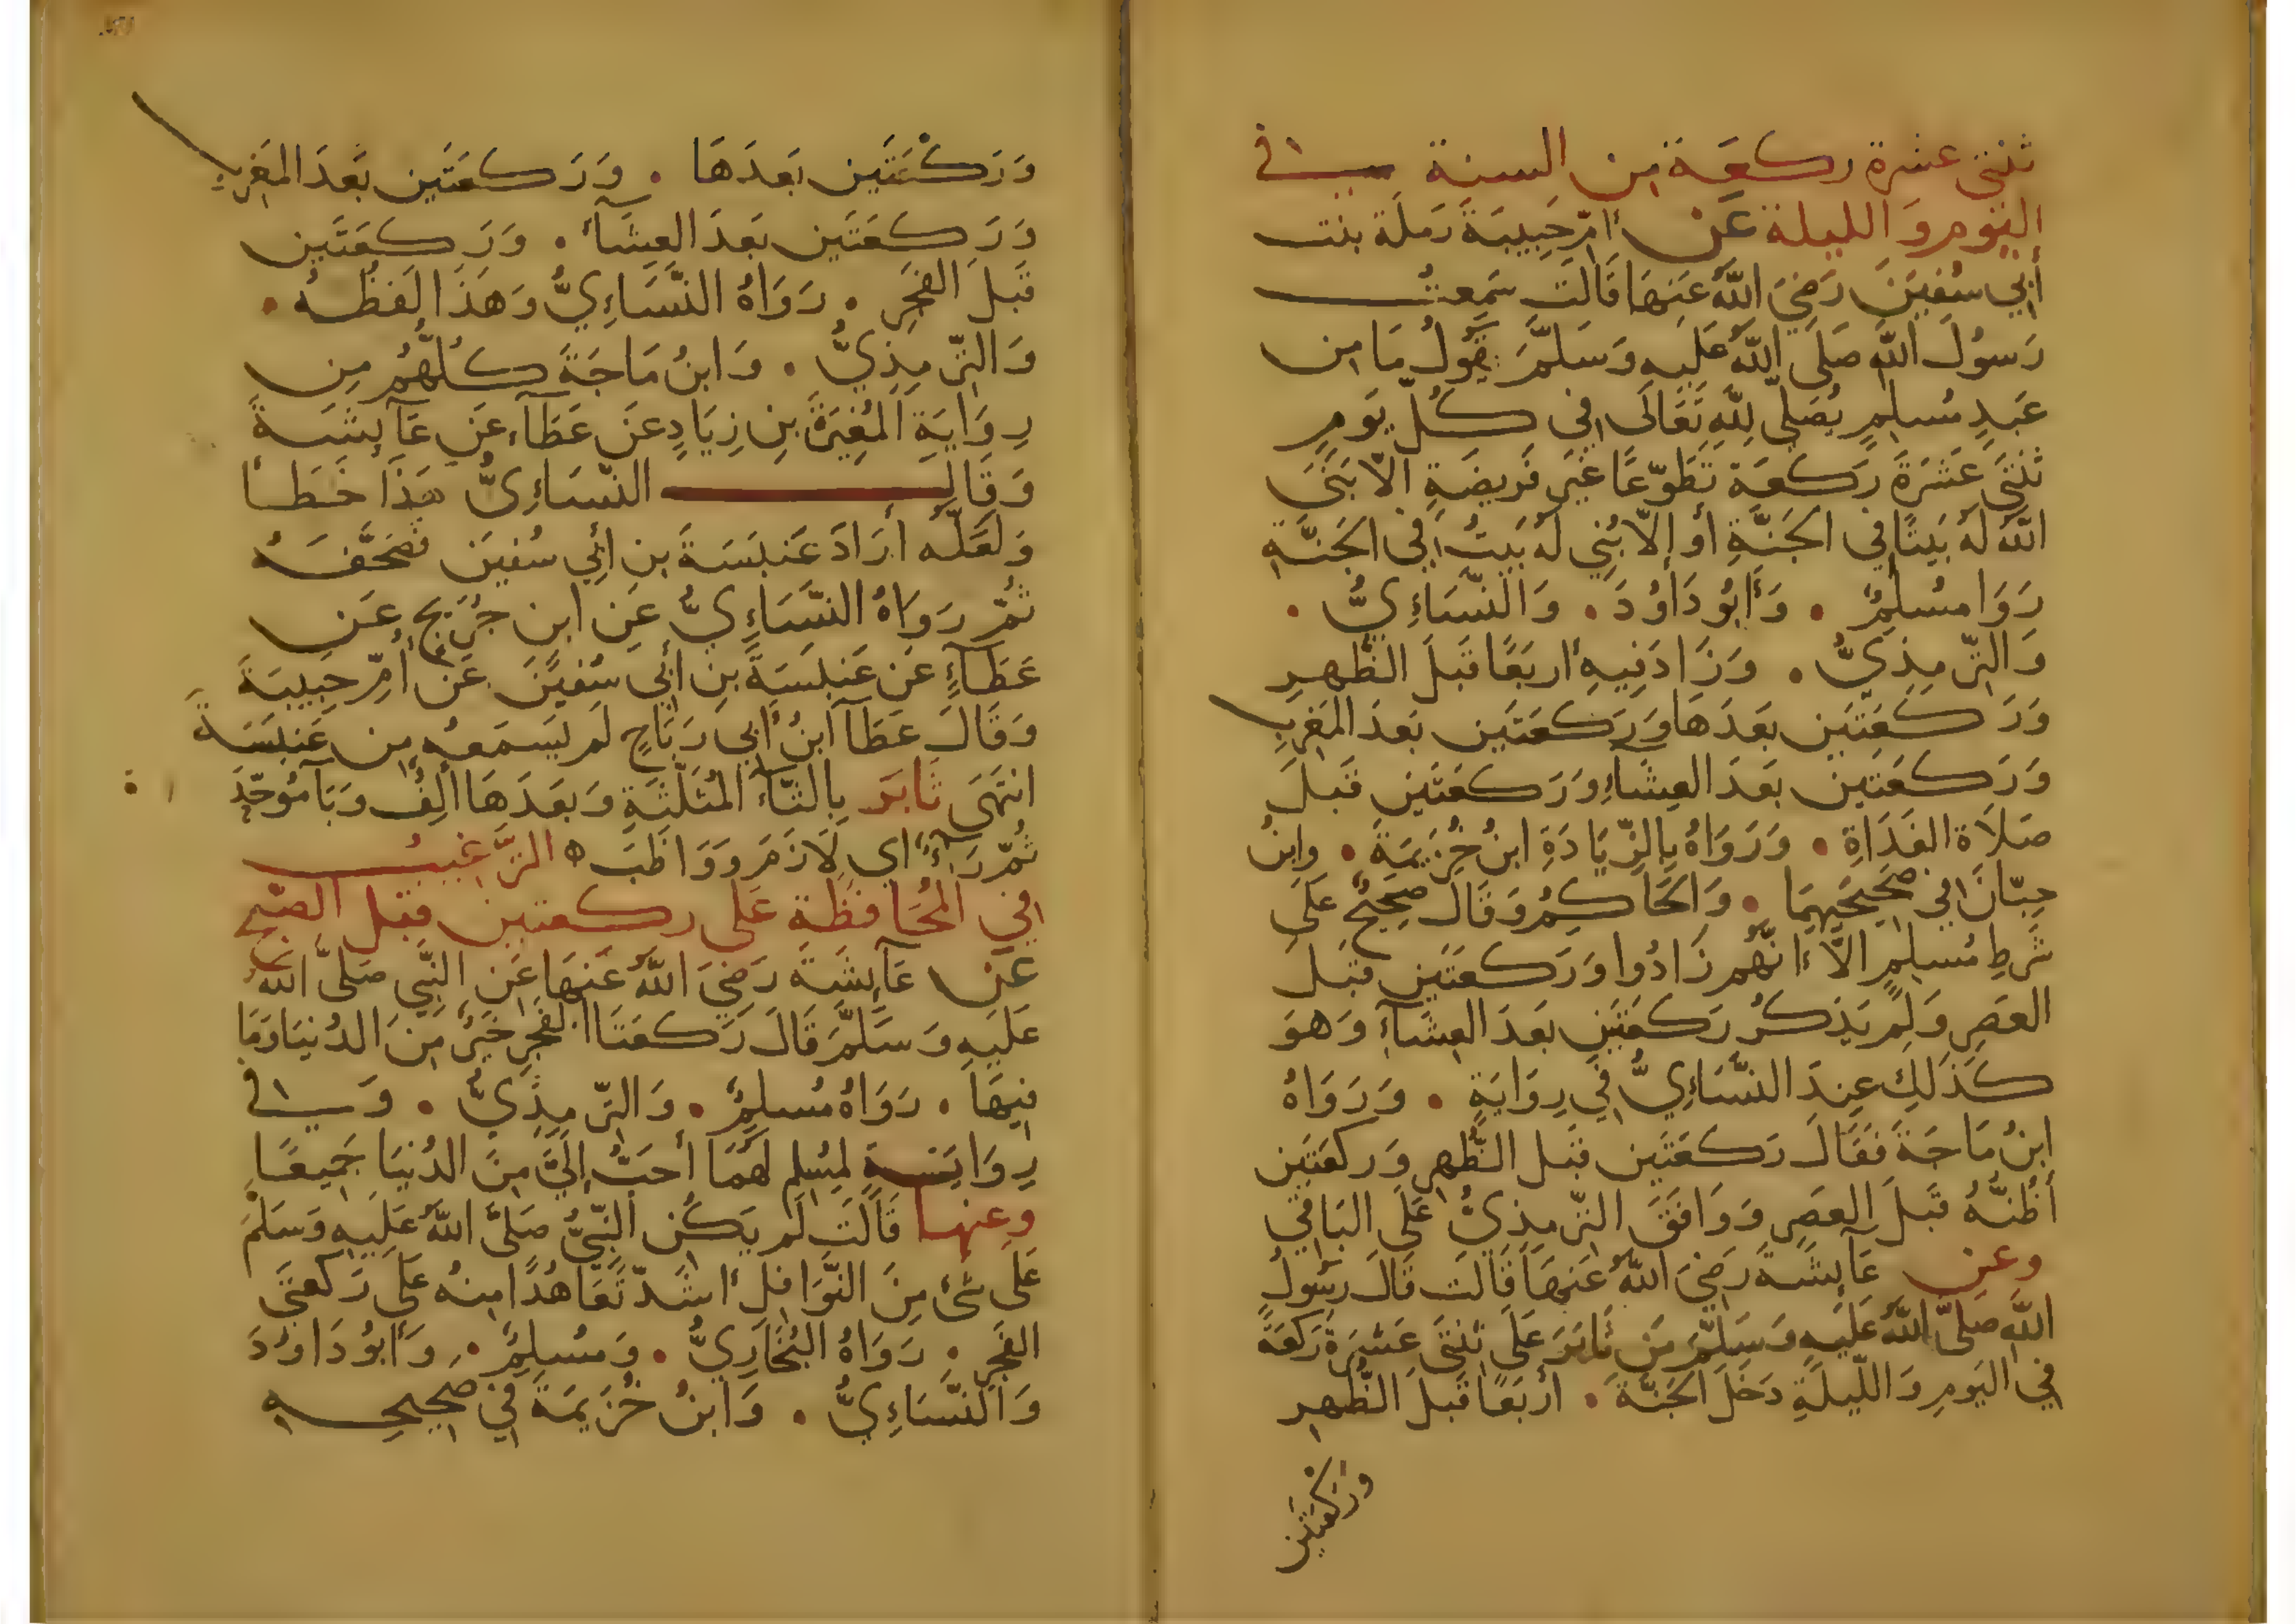 ثنتى عشرة ركعة من السنة في
اليوم والليلة عَن أمّ حَبِيبَةَ رَملَة بنت
أبي سُفيَنَ رَضِيَ اللَّهُ عَنهَا قَالَت سَمِعتُ
رَسُولَ اللَّهِ صَلَّى اللَّهُ عَلَيهِ وَسَلَّمَ يَقُولُ مَا مِن
عَبدٍ مُسلِمٍ يُصَلّي لِلَّهِ تَعَالَى في كُلّ يَومٍ
ثنتَى عَشرَةَ رَكعَةً تَطَوّعًا غَيرَ فَرِيضَةٍ الّا بَنَى
اللَّهُ لَهُ بَيتًا في الجَنَّةِ أو إلّا بُنِيَ لَهُ بَيتٌ في الجَنَّةِ
رَوَا مسُلِمٌ . وَأَبُو دَاوُدَ . وَالنَّسَاءِيُّ .
وَالتّرمِذِيُّ . وَزَادَ فِيهِ أربَعًا قَبلَ الظُّهرِ
وَرَكعَتَينِ بَعدَهَا وَرَكعَتَينِ بَعدَ المَغرِبِ
وَرَكعَتَينِ بَعدَ العِشَاءِ وَرَكعَتَينِ قَبلَ
صَلَاةِ الغَدَاةِ . وَرَوَاهُ بِالزّيَادَةِ ابنُ خُزَيمَةَ . وابنُ
حِبّانَ في صَحِيحَيهِمَا . وَالحَاكِمُ وَقَالَ صَحِيحٌ عَلَى
شَرطِ مُسلِمٍ الّا انَّهُم زَادُوا وَرَكعَتَينِ قَبلَ
العَصرِ وَلَم يَذكُر رَكعَتَينِ بَعدَ العِشَآءِ وَهوَ
كَذَلِكَ عِندَ النَّسَاءِيُّ في رِوَايَةٍ . وَرَوَاهُ
ابنُ مَاجَةَ فَقَالَ رَكعَتَينِ قَبلَ الظُّهرِ وَرَكعَتَينِ
أظُنُّهُ قَبلَ العَصرِ وَوَافَقَ التّرمِذِيُّ عَلَى البَاقي
وعن عَآيشَةَ رَضِيَ اللَّهُ عَنهَا قَالَت قَالَ رَسُولُ
اللَّهِ صَلَّى اللَّهُ عَلَيهِ وَسَلَّمَ مَن ثَابَرَ عَلَى ثنتَى عَشرَةَ رَكعَة
في اليَومِ وَاللّيلَةِ دَخَلَ الجَنَّةَ . أربَعًا قَبلَ الظُّهرِ
وَرَكعَتَينِ
وَرَكعَتَينِ بَعدَهَا . وَرَكعَتَينِ بَعدَ المَغرِبِ
وَرَكعَتَينِ بَعدَ العِشَآءِ . وَرَكعَتَينِ
قَبلَ الفَجرِ . رَوَاهُ النَّسَاءِيُّ وَهَذَا لَفظُهُ .
وَالتّرمِذِيُّ . وَابنُ مَاجَةَ كُلُّهُم مِن
رِوَايَةِ المُغِيَرةَ بنِ زِيَادٍ عَن عَطَآء عَن عَآيشَةَ
وَقَالَ النّسَاءِىُّ هَذَا خَطَأ
وَلَعَلّه أرَادَ عَنبَسَةَ بنِ أبي سُفيَن فصَحَّفَهُ
ثُمّ رَوَاهُ النَّسَاءِيُّ عَنِ ابنِ جُرَيجٍ عَن
عَطَآءٍ عَن عَنبَسَةَ بنِ أبي سُفيَنَ عَن أُمِّ حَبِيبَةَ
وَقَالَ عَطَآ ابنُ أبي رَبَاحٍ لَم يَسمَعهُ مِن عَنبَسَةَ
انتَهَى ثَابَر بِالثَّآءِ المُثَلَّثَةِ وَبَعدَهَا ألِفٌ وَبَآ مُوَحّدَة
ثُمّ رَآءٌ اي لَازَمَ وَوَاظَبَ ه الترَّغيبُ
في المُحَافظَة عَلى ركعتين قبل الصّبح
عَن عَآيشَةَ رَضِيَ اللَّهُ عَنهَا عَنِ النَّبِي صَلّى اللَّهُ
عَلَيهِ وَسَلَّمَ قَالَ رَكعَتَا الفَجرِ خَيرٌ مِنَ الدُنيَا وَمَا
فِيهَا . رَوَاهُ مُسلِمٌ . وَالتّرمِذِىُّ . وَفي
رِوَايَةٍ لمُسلِمٍ لَهُمَا أحَبُّ إلَيَّ مِنَ الدُنيَا جَمِيعًا
وعنها قَالَت لَم يَكُنِ النَّبِيُّ صَلَّى اللَّهُ عَلَيهِ وَسَلَّمَ
عَلَى شَئٍ مِنَ النَّوَافِلِ أشَدّ تَعَاهُدًا مِنهُ عَلَى رَكعتَي
الفَجرِ . رَوَاهُ البُخَارِيُّ . وَمُسلِمٌ . وَأَبُو دَاوُدَ
وَالنَّسَاءِيُّ . وَابنُ خُزَيمَةَ في صَحِيحِهِ